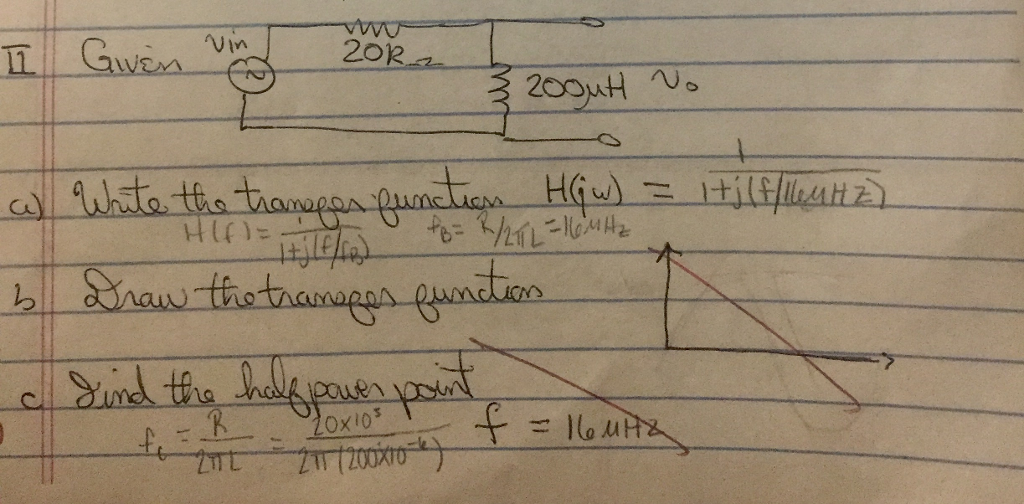 II Given Vin 20kΩ 200μH Vo
a) Write the transfer function H(jω) = 1/(1+j(f/16MHz))
H(f) = 1/(1+j(f/fB)) fB = R/2πL = 16MHz
b Draw the transfer function
c Find the half power point
fc = R/2πL = 20x10³/2π(200x10⁻⁶) f = 16MHz